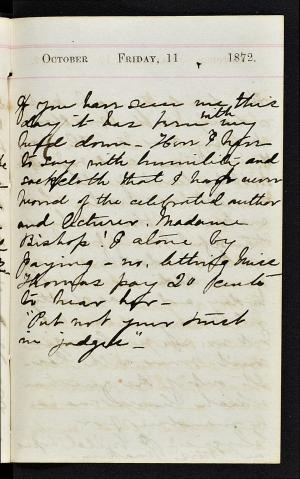 October Friday, 11 1872.
If you have seen me this
day it has been with my
head down - How I have
to say with humility and
sackcloth that I have never
heard of the celebrated author
and lecturer. Madame
Bishop! I alone by
paying - no. letting Miss
Thomas pay 20 cents
to hear her -
"Put not your trust
in judges" -